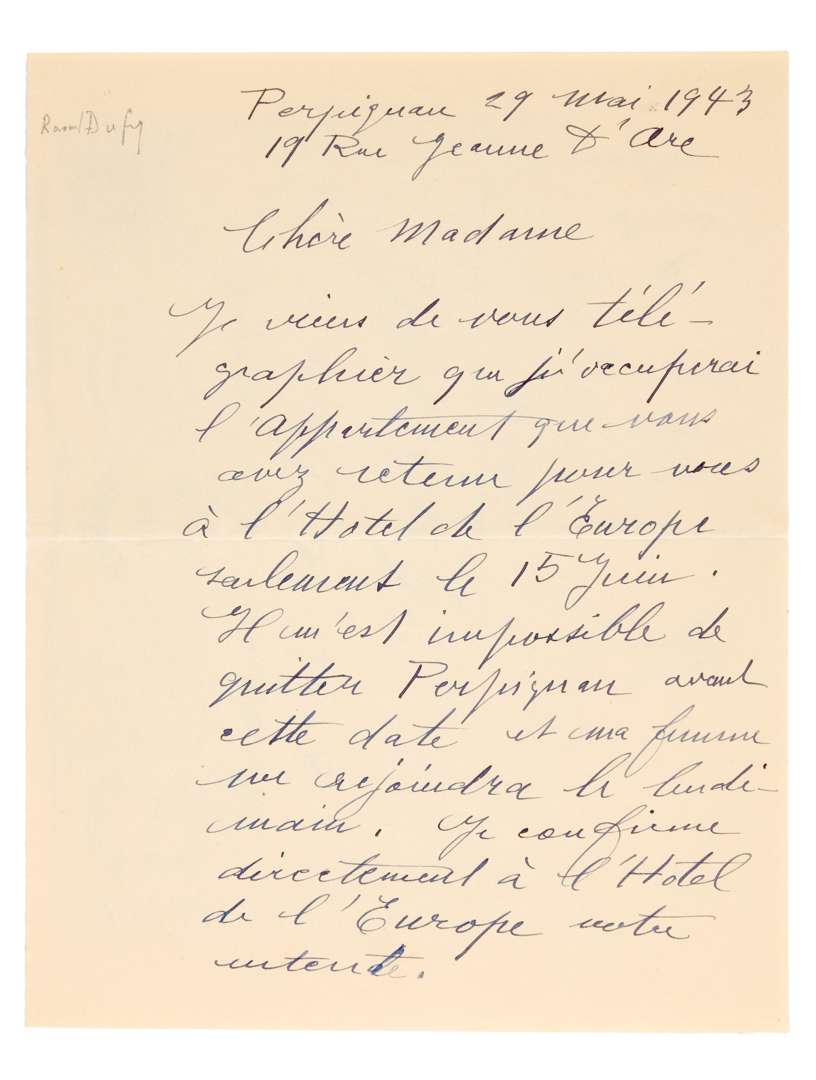 Perpignan 29 Mai 1943
Raoul Dufy
19 Rue Jeanne D'Arc
Chère Madame
Je viens de vous télé-
graphier que j'occuperai
l'appartement que vous
avez retenu pour nous
à l'Hotel de l'Europe
seulement le 15 Juin.
Il m'est impossible de
quitter Perpignan avant
cette date et ma femme
me rejoindra le lende-
main. Je confirme
directement à l'Hotel
de l'Europe notre
entente.